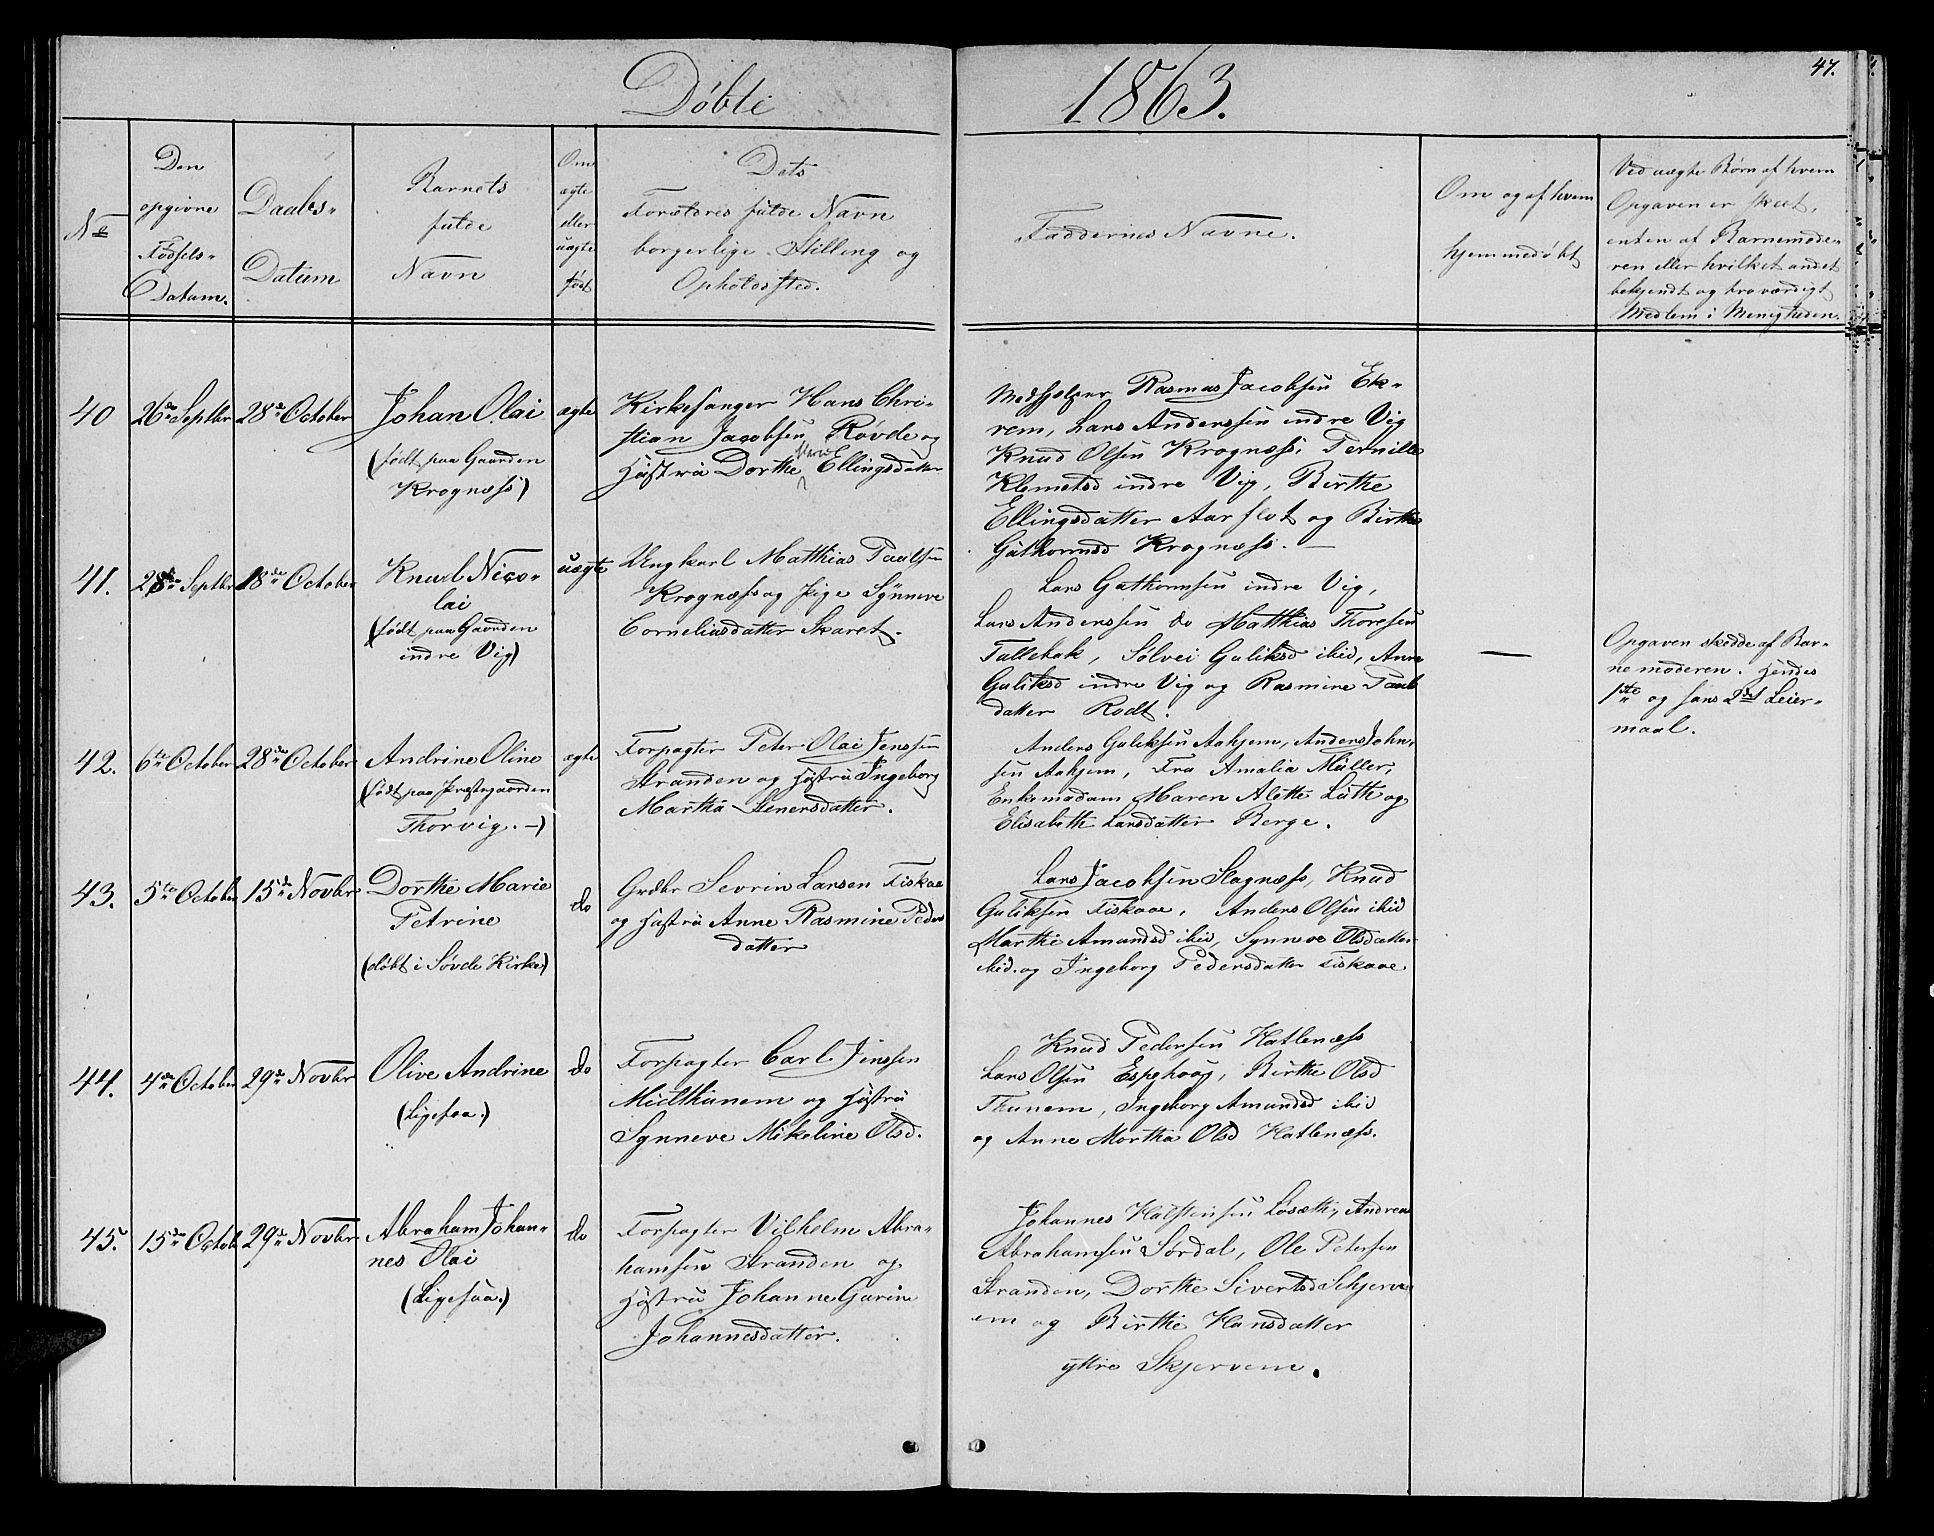 Døbte
1863.
47.
No
Den
opgivne
Fødsels-
Datum.
Daabs-
Datum
Barnets
fulde
Navn
Om
ægte
eller
uægte
født
Dets
Forældres fulde Navn
borgerlige Stilling og
Opholdssted.
Faddernes Navne.
Om og af hvem
hjemmedøbt
Ved uægte Børn af hvem
Opgaven er skeet,
enten af Barnemode-
ren eller hvilket andet
bekjendt og troværdigt
Medlem i Menigheden.
40
26de Septbr
28de October
Johan Olai
(født paa Gaarden
Krognæss)
ægte
Kirkesanger Hans Chri-
stian Jacobsen Røvde og
Hustru Dorthe Marie Ellingsdatter
Medhjelper Rasmus Jacobsen Ek-
rem, Lars Anderssen indre Vig
Knud Olsen Krognæss, Pernille
Klemetsd indre Vig, Birthe
Ellingsdatter Aarflot og Birthe
Guthormsd Krognæss. —
41.
28de Septbr
18de October
Knud Nico-
lai
(født paa Gaarden
indre Vig)
uægte
Ungkarl Matthias Paulsen
Krognæss og Pige Synneve
Corneliusdatter Skaret.
Lars Guthormsen indre Vig,
Lars Anderssen do Matthias Thoresen
Tallehak, Sølvei Guliksd ibid, Anne
Guliksd indre Vig og Rasmine Paul
datter Rodt.
—
Opgaven skedde af Bar-
nemoderen. Hendes
1ste og hans 2det Leier-
maal.
42.
6te October
28de October
Andrine Oline
(født paa Præstegaarden
Thorvig. —)
ægte
Forpagter Peter Olai Jenssen
Stranden og Hustru Ingeborg
Martha Stenersdatter.
Anders Guliksen Aahjem, Anders John-
sen Aahjem, Fru Amalia Müller,
Enkemadam Maren Alette Luth og
Elisabeth Larsdatter Berge.
43.
5te October
15de Novbr
Dorthe Marie
Petrine
(døbt i Søvde Kirke)
do
Grdbr Sevrin Larsen Fiskaa
og Hustru Anne Rasmine Peders
datter
Lars Jacobsen Slagnæss, Knud
Guliksen Fiskaae, Anders Olsen ibid
Marthe Amundsd ibid, Synneve Olsdatter
ibid. og Ingeborg Pedersdatter Fiskaae
44.
4de October
29de Novbr
Olive Andrine
(Ligesaa.)
do
Forpagter Carl Jenssen
Midthunem og Hustru
Synneve Mikeline Olsd.
Knud Pedersen Hatlenæss
Lars Olsen Espehoug, Birthe Olsd
Thunem, Ingeborg Amundsd ibid
og Anne Martha Olsd Hatlenæss.
45.
15de Octob
29de Novbr
Abraham Johan-
nes Olai
(Ligesaa.)
do
Forpagter Vilhelm Abra-
hamsen Stranden og
Hustru Johanne Gurine
Johannesdatter.
Johannes Halstensen Løsæth, Andreas
Abrahamsen Sørdal, Ole Petersen
Stranden, Dorthe Sivertsd Skjerve
em og Birthe Hansdatter
yttre Skjervem.